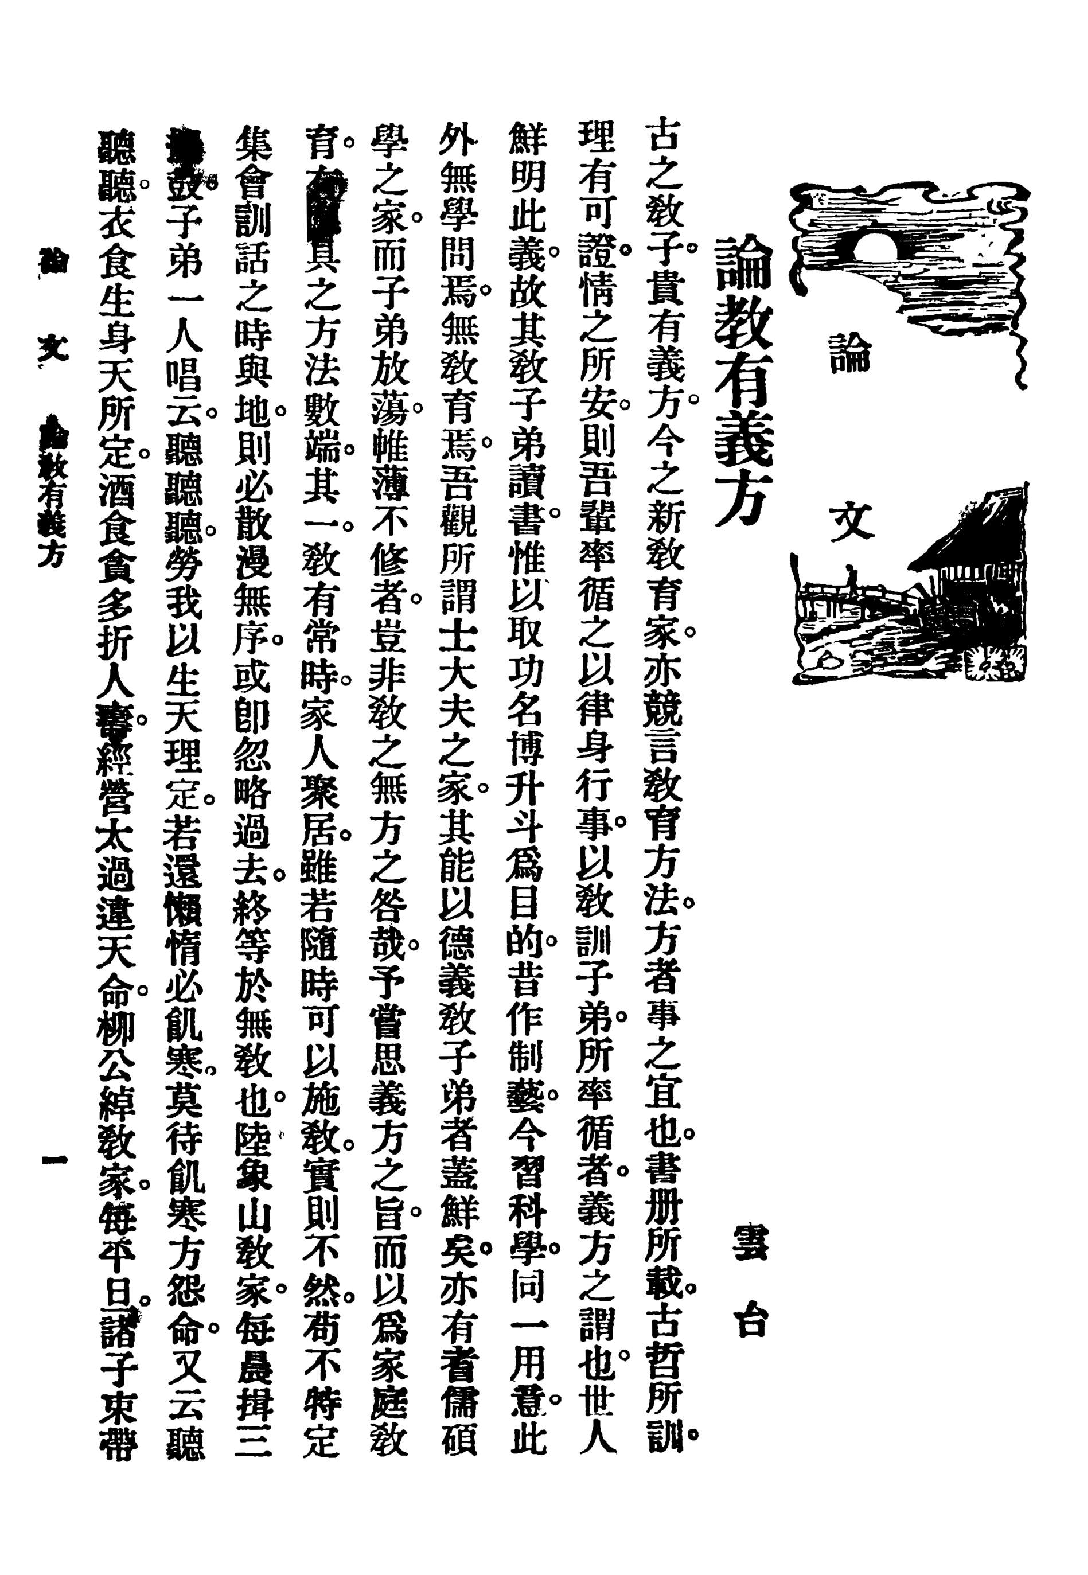 論文
論教有義方
雲台
古之教子。貴有義方。今之新教育家。亦競言教育方法。方者事之宜也。書册所載。古哲所訓。
理有可證。情之所安。則吾輩率循之以律身行事。以教訓子弟。所率循者。義方之謂也。世人
鮮明此義。故其教子弟讀書。惟以取功名博升斗爲目的。昔作制藝。今習科學。同一用意。此
外無學問焉。無教育焉。吾觀所謂士大夫之家。其能以德義教子弟者蓋鮮矣。亦有耆儒碩
學之家。而子弟放蕩。帷薄不修者。豈非教之無方之咎哉。予嘗思義方之旨。而以爲家庭教
育。有具之方法數端。其一。教有常時。家人聚居。雖若隨時可以施教。實則不然。苟不特定
集會訓話之時與地。則必散漫無序。或卽忽略過去。終等於無教也。陸象山教家。每晨揖三
鼓。子弟一人唱云。聽聽聽。勞我以生天理定。若還懶惰必飢寒。莫待飢寒方怨命。又云聽
聽聽。衣食生身天所定。酒食貪多折人壽。經營太過違天命。柳公綽教家。每平日。諸子束帶
論文 論教有義方 一